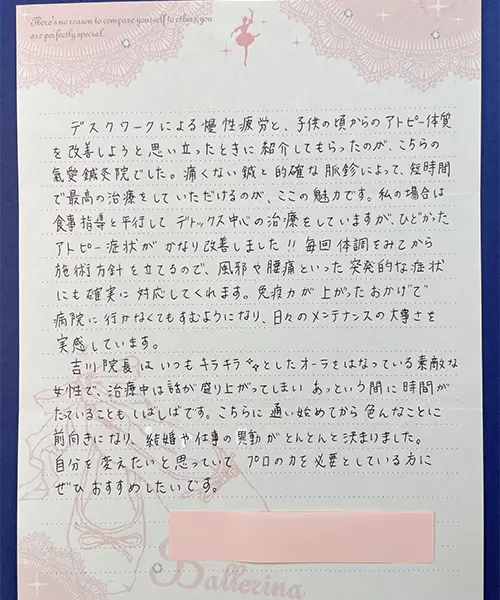 There's no reason to compare yourself to others, you
are perfectly special.
デスクワークによる慢性疲労と、子供の頃からのアトピー体質
を改善しようと思い立ったときに紹介してもらったのが、こちらの
氣愛鍼灸院でした。痛くない鍼と的確な脈診によって、短時間
で最高の治療をしていただけるのが、ここの魅力です。私の場合は
食事指導と平行してデトックス中心の治療をしていますが、ひどかった
アトピー症状がかなり改善しました!!毎回体調をみてから
施術方針を立てるので、風邪や腰痛といった突発的な症状
にも確実に対応してくれます。免疫力が上がったおかげで
病院に行かなくてもすむようになり、日々のメンテナンスの大事さを
実感しています。
吉川院長はいつもキラキラとしたオーラをはなっている素敵な
女性で、治療中は話が盛り上がってしまいあっという間に時間が
たっていることもしばしばです。こちらに通い始めてから色んなことに
前向きになり、結婚や仕事の異動がとんとんと決まりました。
自分を変えたいと思っていてプロの力を必要としている方に
ぜひおすすめしたいです。
Ballerina